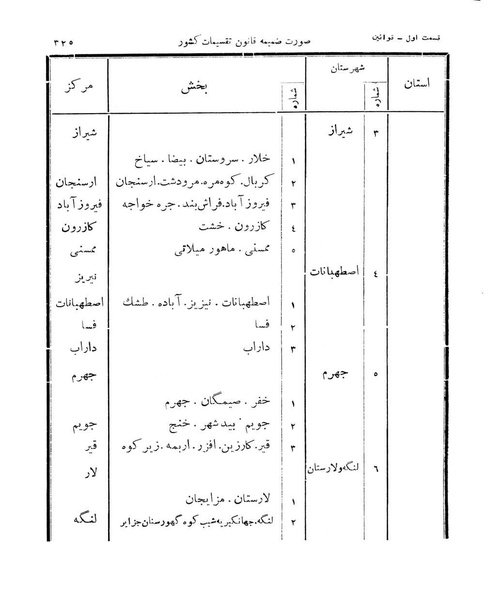 قسمت اول – قوانین صورت ضمیمه قانون تقسیمات کشور ۳۲۵
استان شهرستان بخش مرکز
شماره شماره
۳ شیراز شیراز
۱ خلار . سروستان . بیضا . سیاخ
۲ کربال . کوه‌مره . مرودشت . ارسنجان ارسنجان
۳ فیروزآباد . فراش‌بند . جره خواجه فیروزآباد
٤ کازرون . خشت کازرون
٥ ممسنی . ماهور میلاتی ممسنی
٤ اصطهبانات نیریز
۱ اصطهبانات . نیریز . آباده . طشك اصطهبانات
۲ فسا فسا
۳ داراب داراب
٥ جهرم جهرم
۱ خفر . صیمگان . جهرم
۲ جویم . بیدشهر . خنج جویم
۳ قیر . کارزین . افزر . اربعه . زیر کوه قیر
٦ لنگه ولارستان لار
۱ لارستان . مزایجان
۲ لنگه . جهانگیریه شیب کوه گهورستان جزایر لنگه